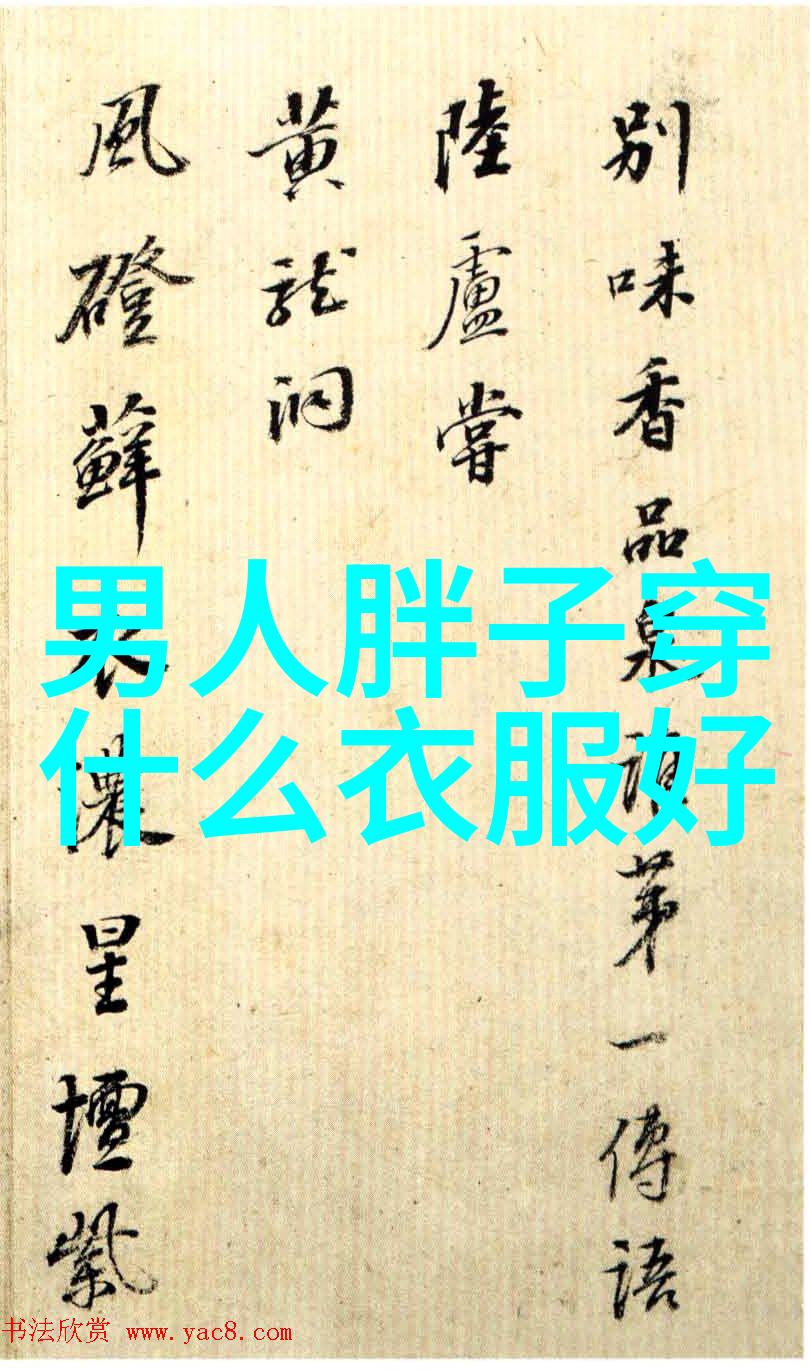 男人胖子穿
什么衣服好
别味香品泉須苐一傳語
陸盧嘗
黄龍洞
風磴蘚衣濃星壇紫
书法欣赏 www.yac8.com